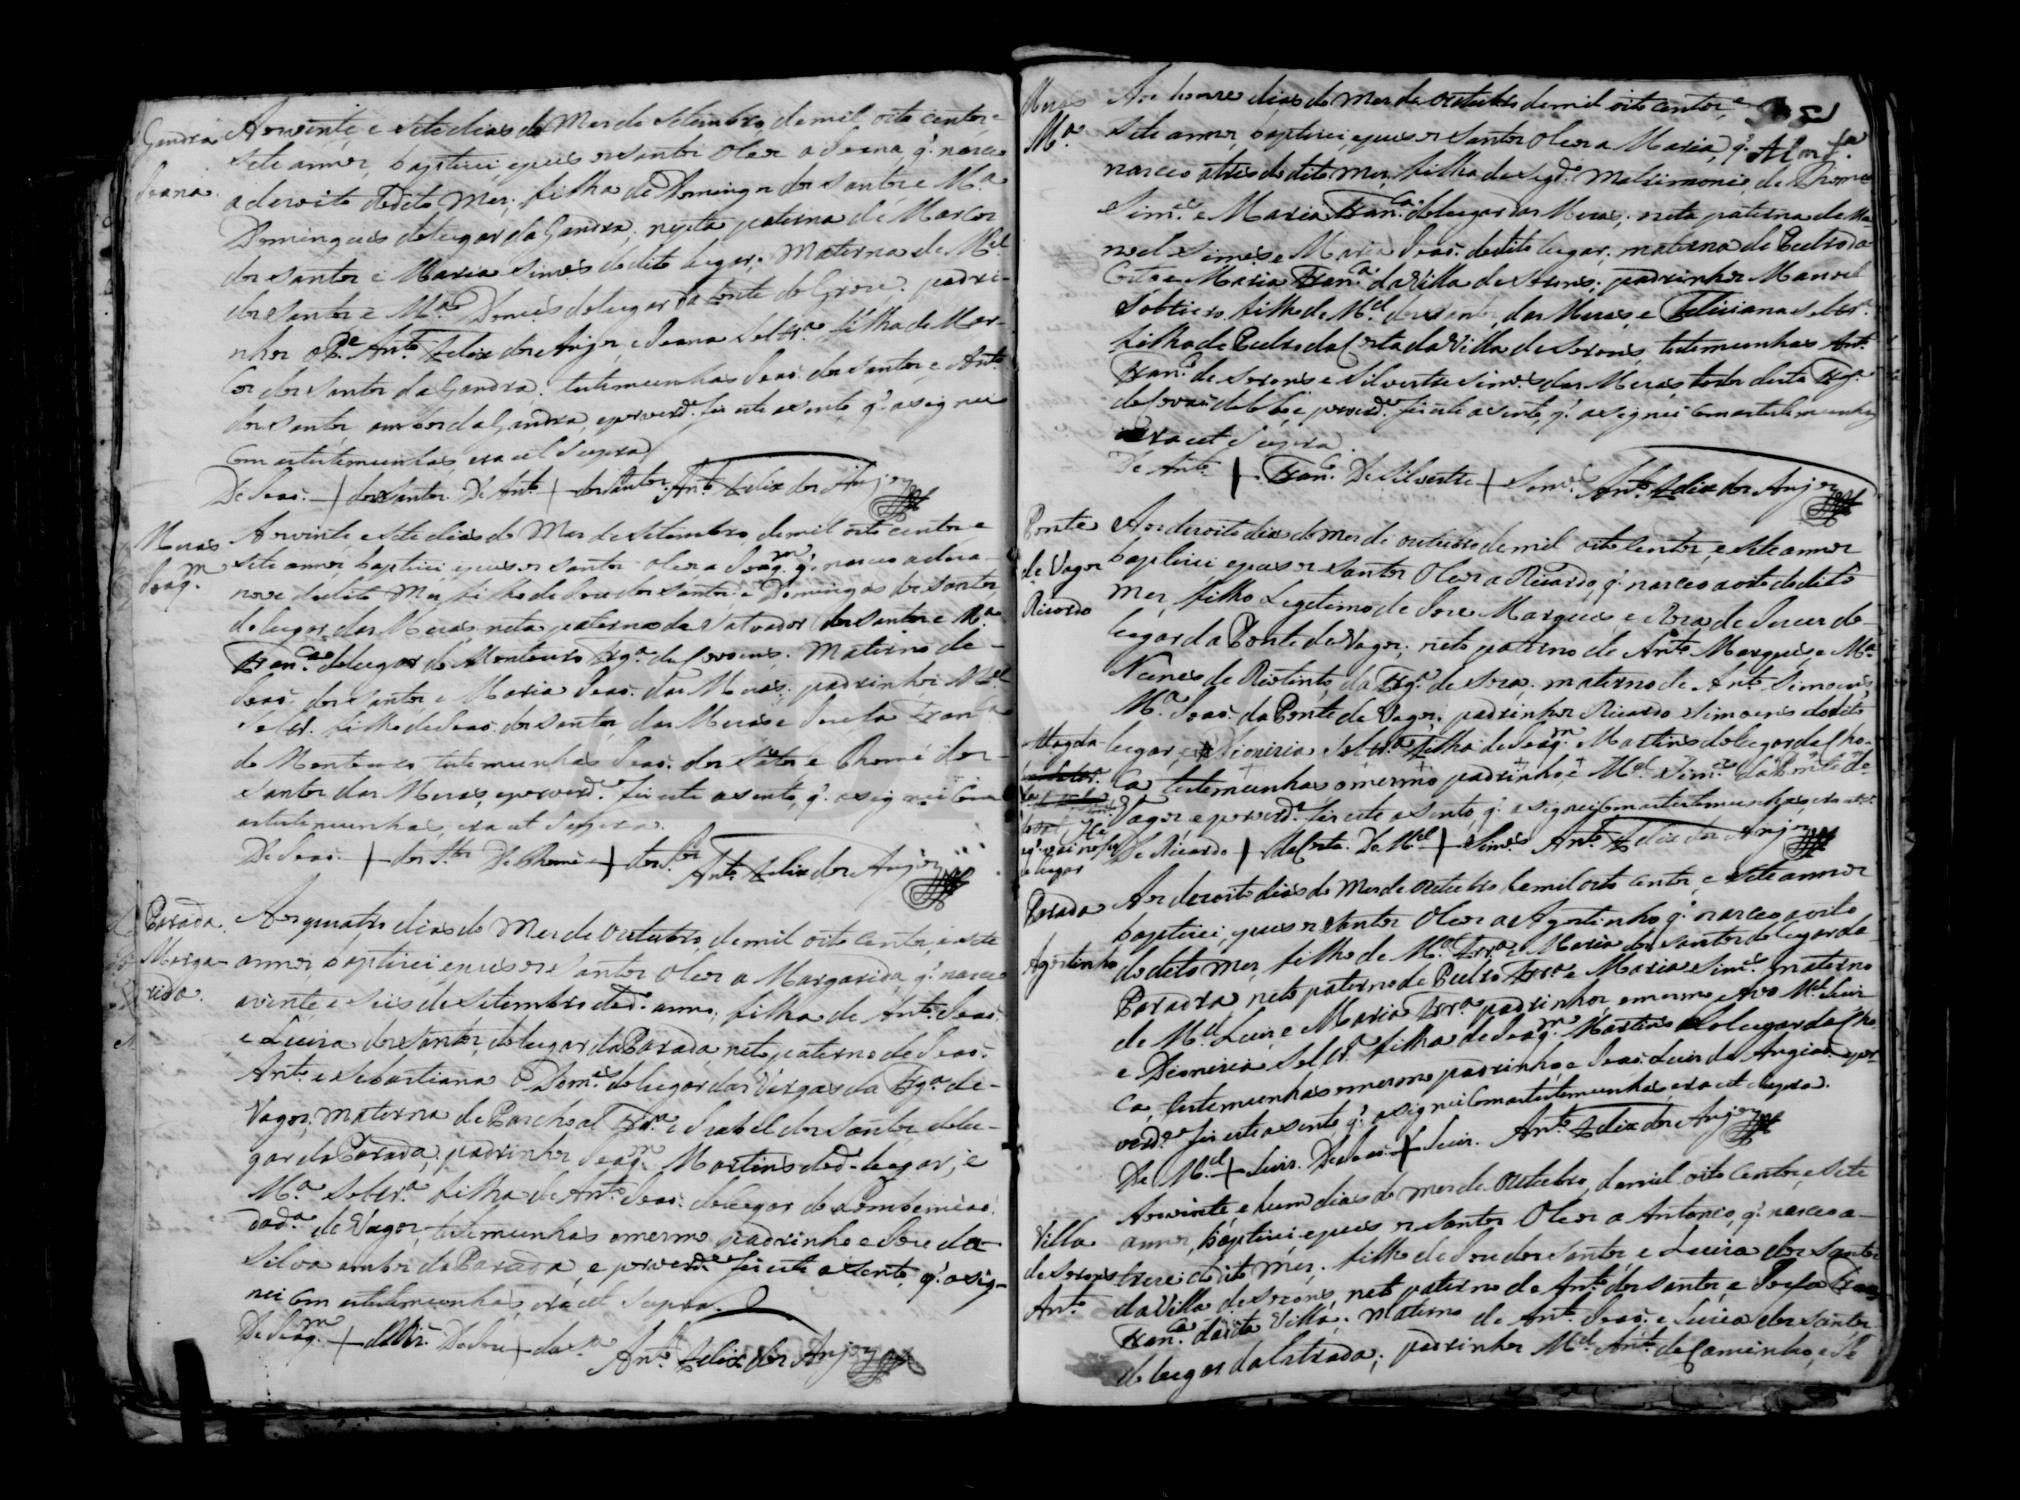 Gandra
Joana.
Aos vinte, e sete dias do Mes de Setembro, de mil oito centos, e
sete annos, baptizei, e puz os Santos Oleos a Joana, q.' nasceo
a dezoito do dito Mes, filha de Domingos dos Santos e M.ª
Domingues do lugar da Gandra; neta paterna de Marcos
dos Santos e Maria Simoes do dito lugar; Materna de M.el
dos Santos e M.ª Domes do lugar da fonte do Grou; padri-
nhos o P.e Ant.º Felix dos Anjos, e Joana Soltr.ª filha de Mar-
cos dos Santos da Gandra. testemunhas Joaõ dos Santos, e Ant.º
dos Santos ambos da Gandra, e por verd.e fiz este asento, q.' asignei
com as testemunhas, era ut supra
De Joaõ + dos Santos. De Ant.º + dos Santos. Ant.º Felix dos Anjos
Meses
Joaq.m
Aos vinte e sete dias do Mes de Setembro, de mil oito centos, e
sete annos, baptizei e puz os Santos Oleos a Joaq.m q.' nasceo a deza-
nove do dito Mes, filho de Jose dos Santos e Domingas dos Santos
do lugar das Meses, neto paterno de Salvador dos Santos e M.ª
Fran.ca do lugar do Montouro Frg.ª de Covoens. Materno de
Joaõ dos Santos e Maria Joaõ das Meses; padrinhos M.el
Soltr. filho de Joaõ dos Santos, das Meses e Josefa Fran.ca
do Montouro testemunhas Joaõ dos Stos e Thomé dos
Santos das Meses, e por verd.e fiz este asento, q.' asignei com
as testemunhas, era ut supra.
De Joaõ + dos Stos De Thomé + dos Stos Ant.º Felix dos Anjos
Parada.
Marga-
rida.
Aos quatro dias do Mes de Outubro, de mil oito centos, e sete
annos baptizei, e puz os Santos Oleos a Margarida, q.' nasceo
a vinte e seis de Setembro do d.º anno, filha de Ant.º Joaõ
e Luiza dos Santos, do lugar da Parada neta paterna de Joaõ
Ant.º e Sebastiana Domes do lugar das Vergas da Frg.ª de
Vagos, Materna de Paschoal Frr.ª e Isabel dos Santos, do lu-
gar da Parada, padrinhos Joaq.m Martins do d.º lugar, e
M.ª Soltr.ª filha de Ant.º Joaõ do lugar do Lombomeaõ
da d.ª de Vagos, testemunhas o mesmo padrinho e Jose da
Silva ambos da Parada, e por verd.e fiz este asento, q.' asig-
nei com as testemunhas, era ut supra.
De Joaq.m + De Jose + da S.ª Ant.º Felix dos Anjos
Meses
M.ª
Aos honze dias do Mes de Outubro de mil oito centos, e
sete annos, baptizei, e puz os Santos Oleos a Maria, q.'
nasceo a tres do dito Mes, filha de Seg.do Matrimonio de Thome
Sim.es e Maria Fran.ca do lugar das Meses; neta paterna de Ma-
noel Simoes e Maria Joaõ do dito lugar, materna de Pedro da
Costa e Maria Fran.ca da Villa de Sorens; padrinhos Manoel
Solteiro filho de M.el dos Santos, das Meses e Feliciana Soltr.ª
filha de Pedro da Costa da Villa de Sorens, testemunhas Ant.º
Fran.co de Sorens e Silvestre Sim.es das Meses, todos desta Frg.ª
de Covaõ do Lobo e por verd.e fiz este asento, q.' asignei com as testemunhas
era ut supra.
De Ant.º + Fran.co De Silvestre + Sim.es Ant.º Felix dos Anjos
Ponte
de Vagos
Ricardo
Aos dezoito dias do mes de outubro de mil oito centos, e sete annos
baptizei e puz os Santos Oleos a Ricardo, q.' nasceo a oito do dito
Mes, filho Legitimo de Jose Marques e Roza de Jesus do
lugar da Ponte de Vagos; neto paterno de Ant.º Marques e M.ª
Nunes de Riotinto, da Frg.ª de Soza; materno de Ant.º Simoens,
M.ª Joaõ da Ponte de Vagos, padrinhos Ricardo Simoens do dito
lugar, e Dionizia Soltr.ª filha de Joaq.m Martins do lugar da Cho-
ca testemunhas o mesmo padrinho, e M.el Sim.es da Ponte de
Vagos e por verd.e fiz este asento, q.' asignei com as testemunhas, era ut s.
De Ricardo + De M.el + Sim.es Ant.º Felix dos Anjos
Parada
Agostinho
Aos dezoito dias do Mes de Outubro, de mil oito centos, e sete annos
baptizei, e puz os Santos Oleos a Agostinho, q.' nasceo a oito
do dito mes, filho de M.el Frr.ª e Maria dos Santos do lugar da
Parada, neto paterno de Pedro Frr.ª e Maria Sim.es, materno
de M.el Luis e Maria Frr.ª padrinhos, o mesmo Avo M.el Luis
e Dionizia Soltr.ª filha de Joaq.m Martins do lugar da Cho-
ca, testemunhas o mesmo padrinho, e Joaõ Luis e por
verd.e fiz este asento q.' asignei com as testemunhas, era ut supra.
De M.el + Luis. De Joaõ + Luis. Ant.º Felix dos Anjos
Villa
de Sorens
Ant.º
Aos vinte e hum dias do mes de Outubro, de mil oito centos, e sete
annos, baptizei e puz os Santos Oleos a Antonio, q.' nasceo a
treze do dito mes, filho de Jose dos Santos, e Luiza dos Santos
da Villa de Sorens, neto paterno de Ant.º dos Santos, e Josefa
Fran.ca da dita Villa. Materno de Ant.º Joaõ e Luiza dos Santos
do lugar da Estrada; padrinhos M.el Ant.º do Caminho, e Je